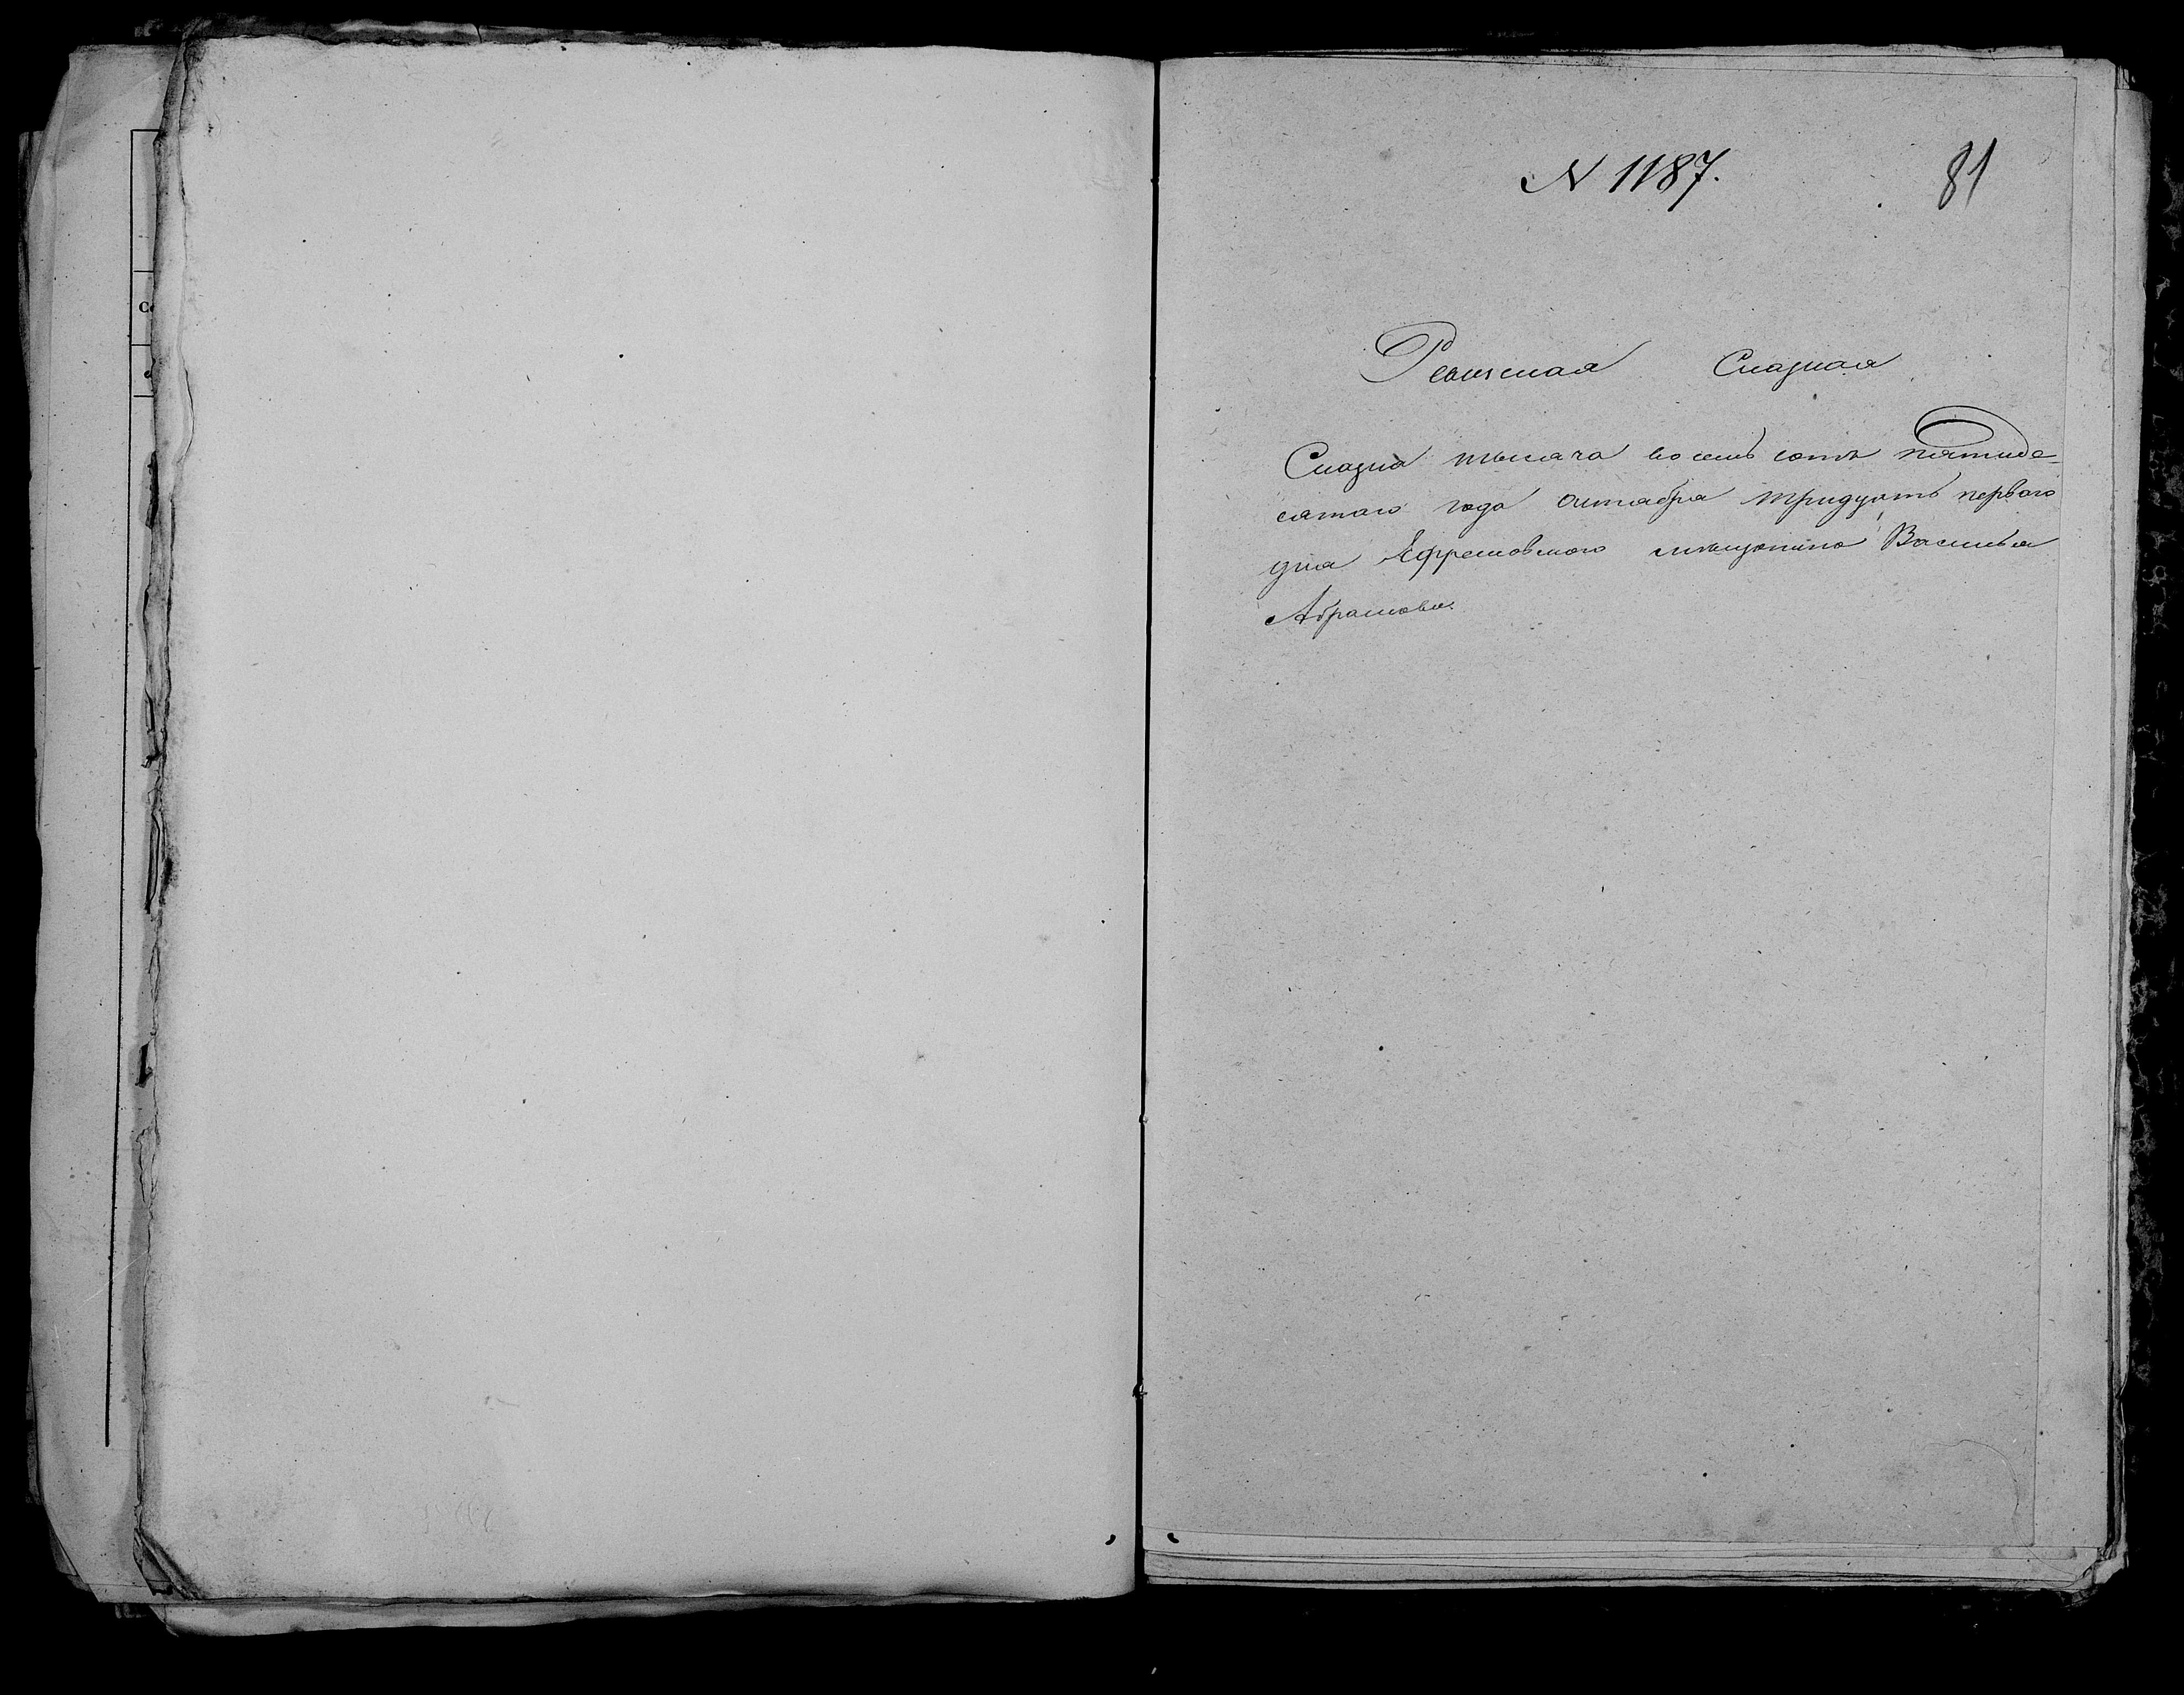 N 1187.
81
Ревизская Сказка
Сказка тысяча восемь сотъ пятиде-
сятаго года октября тридцать перваго
дня Ефремовского мещанина Василья
Абрамова